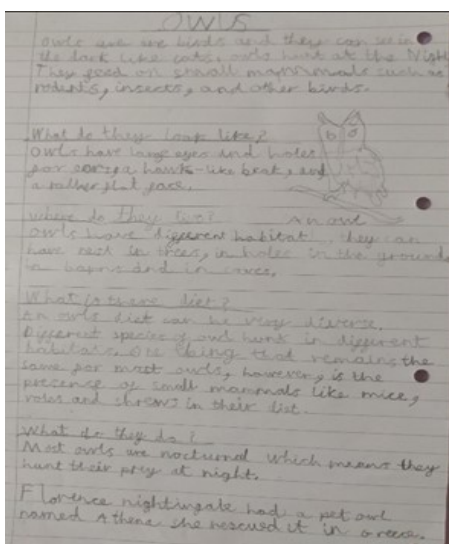 OWLS
owls are birds and they can see in
the dark like cats, owls hunt at the Night
They feed on small mammals such as
rodents, insects, and other birds.
What do they look like?
Owls have large eyes and holes
for ears, a hawk-like beak, and
a rather flat face.
Where do they live?
An owl
Owls have different habitat. they can
have nest in trees, in holes in the ground
in barns and in caves.
What is there diet?
An owls diet can be very diverse.
Different species of owl hunt in different
habitats. One thing that remains the
same for most owls, however, is the
presence of small mammals like mice,
voles and shrews in their diet.
What do they do?
Most owls are nocturnal which means they
hunt their prey at night.
Florence nightingale had a pet owl
named Athena she rescued it in Greece.